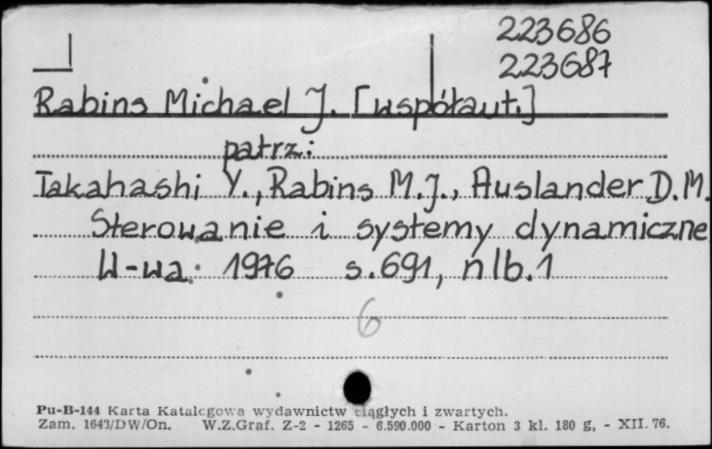 223686
223687
Rabins Michael J. [współaut.]
patrz:
Takahashi Y., Rabins M.J., Auslander D.M.
Sterowanie i systemy dynamiczne
W-wa 1976 s.691, nlb.1
6
Pu-B-144 Karta Katalogowa wydawnictw ciągłych i zwartych.
Zam. 1643/DW/On. W.Z.Graf. Z-2 - 1265 - 6.590.000 - Karton 3 kl. 180 g, - XII. 76.